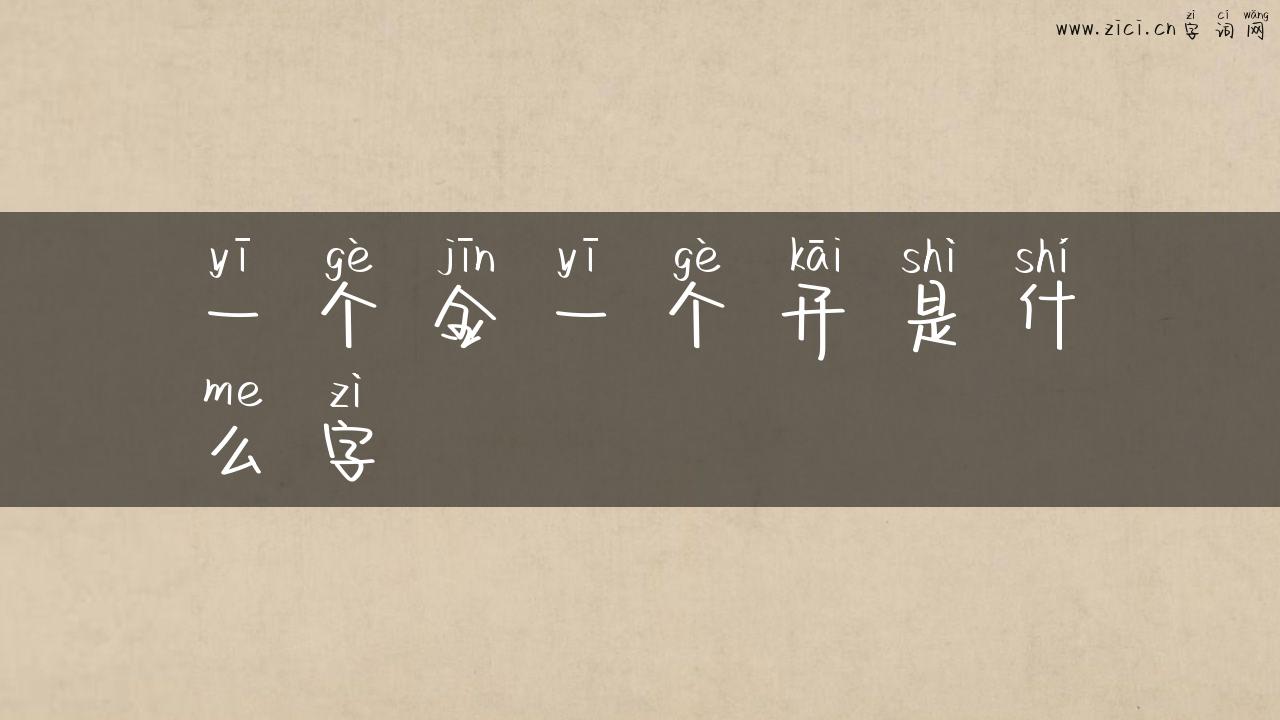 zì cí wǎng
www.zici.cn 字 词 网
yī gè jīn yī gè kāi shì shí
一 个 金 一 个 开 是 什
me zì
么 字